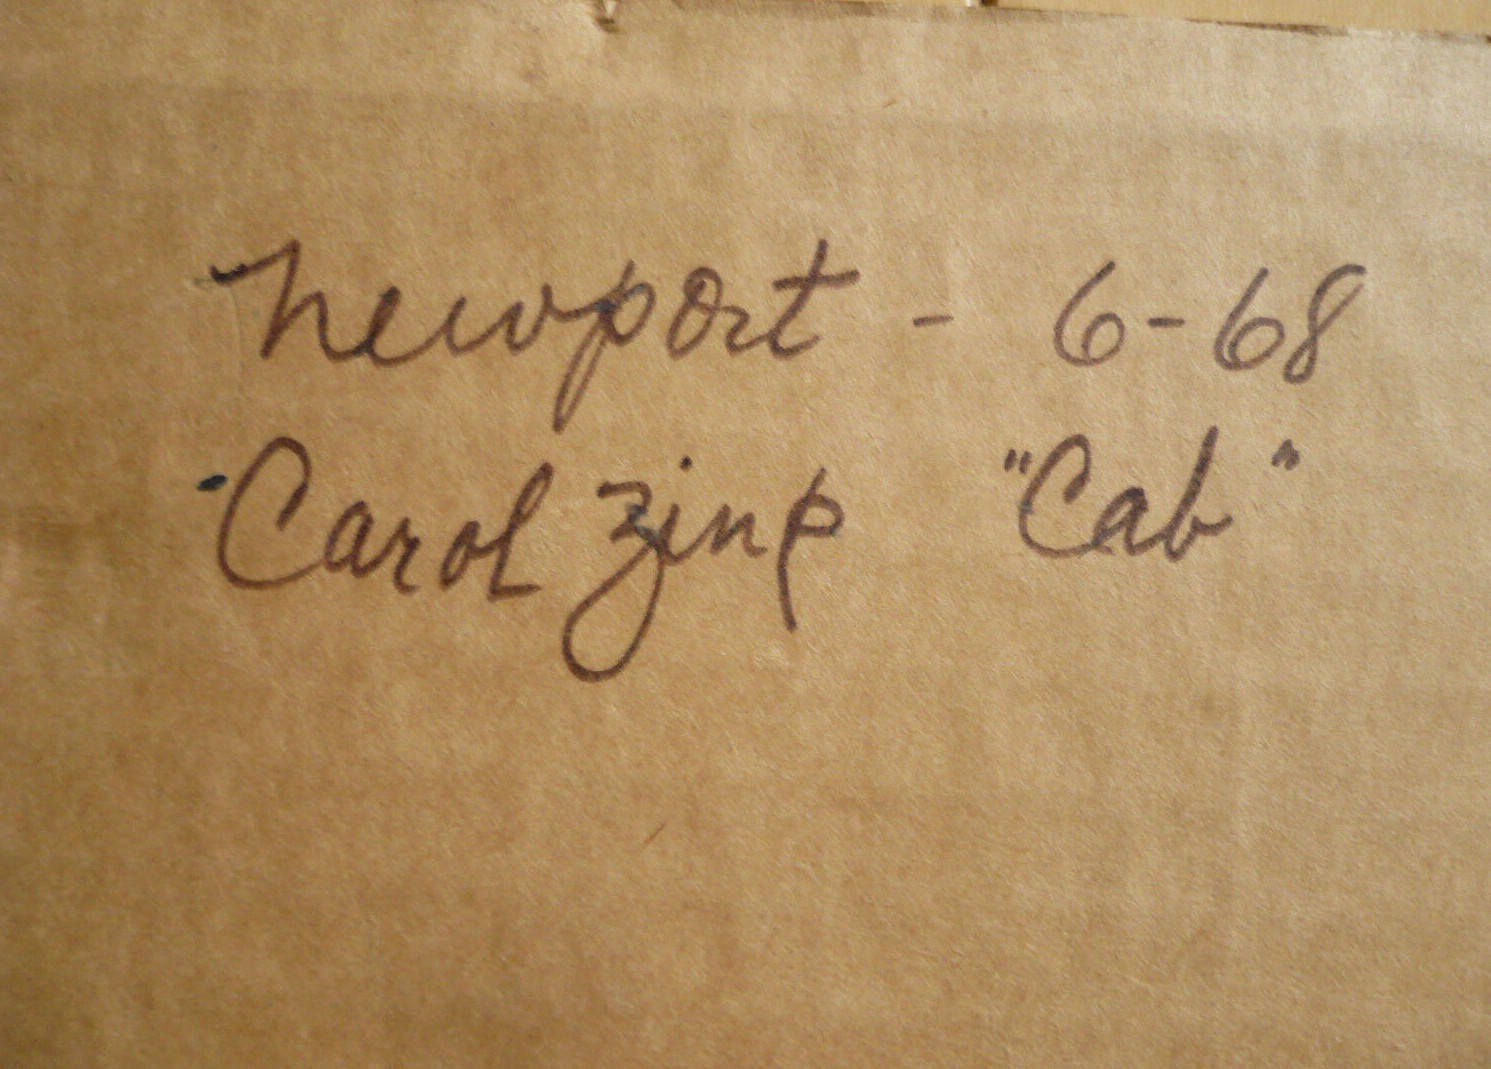 Newport - 6-68
Carol Zinp "Cab"